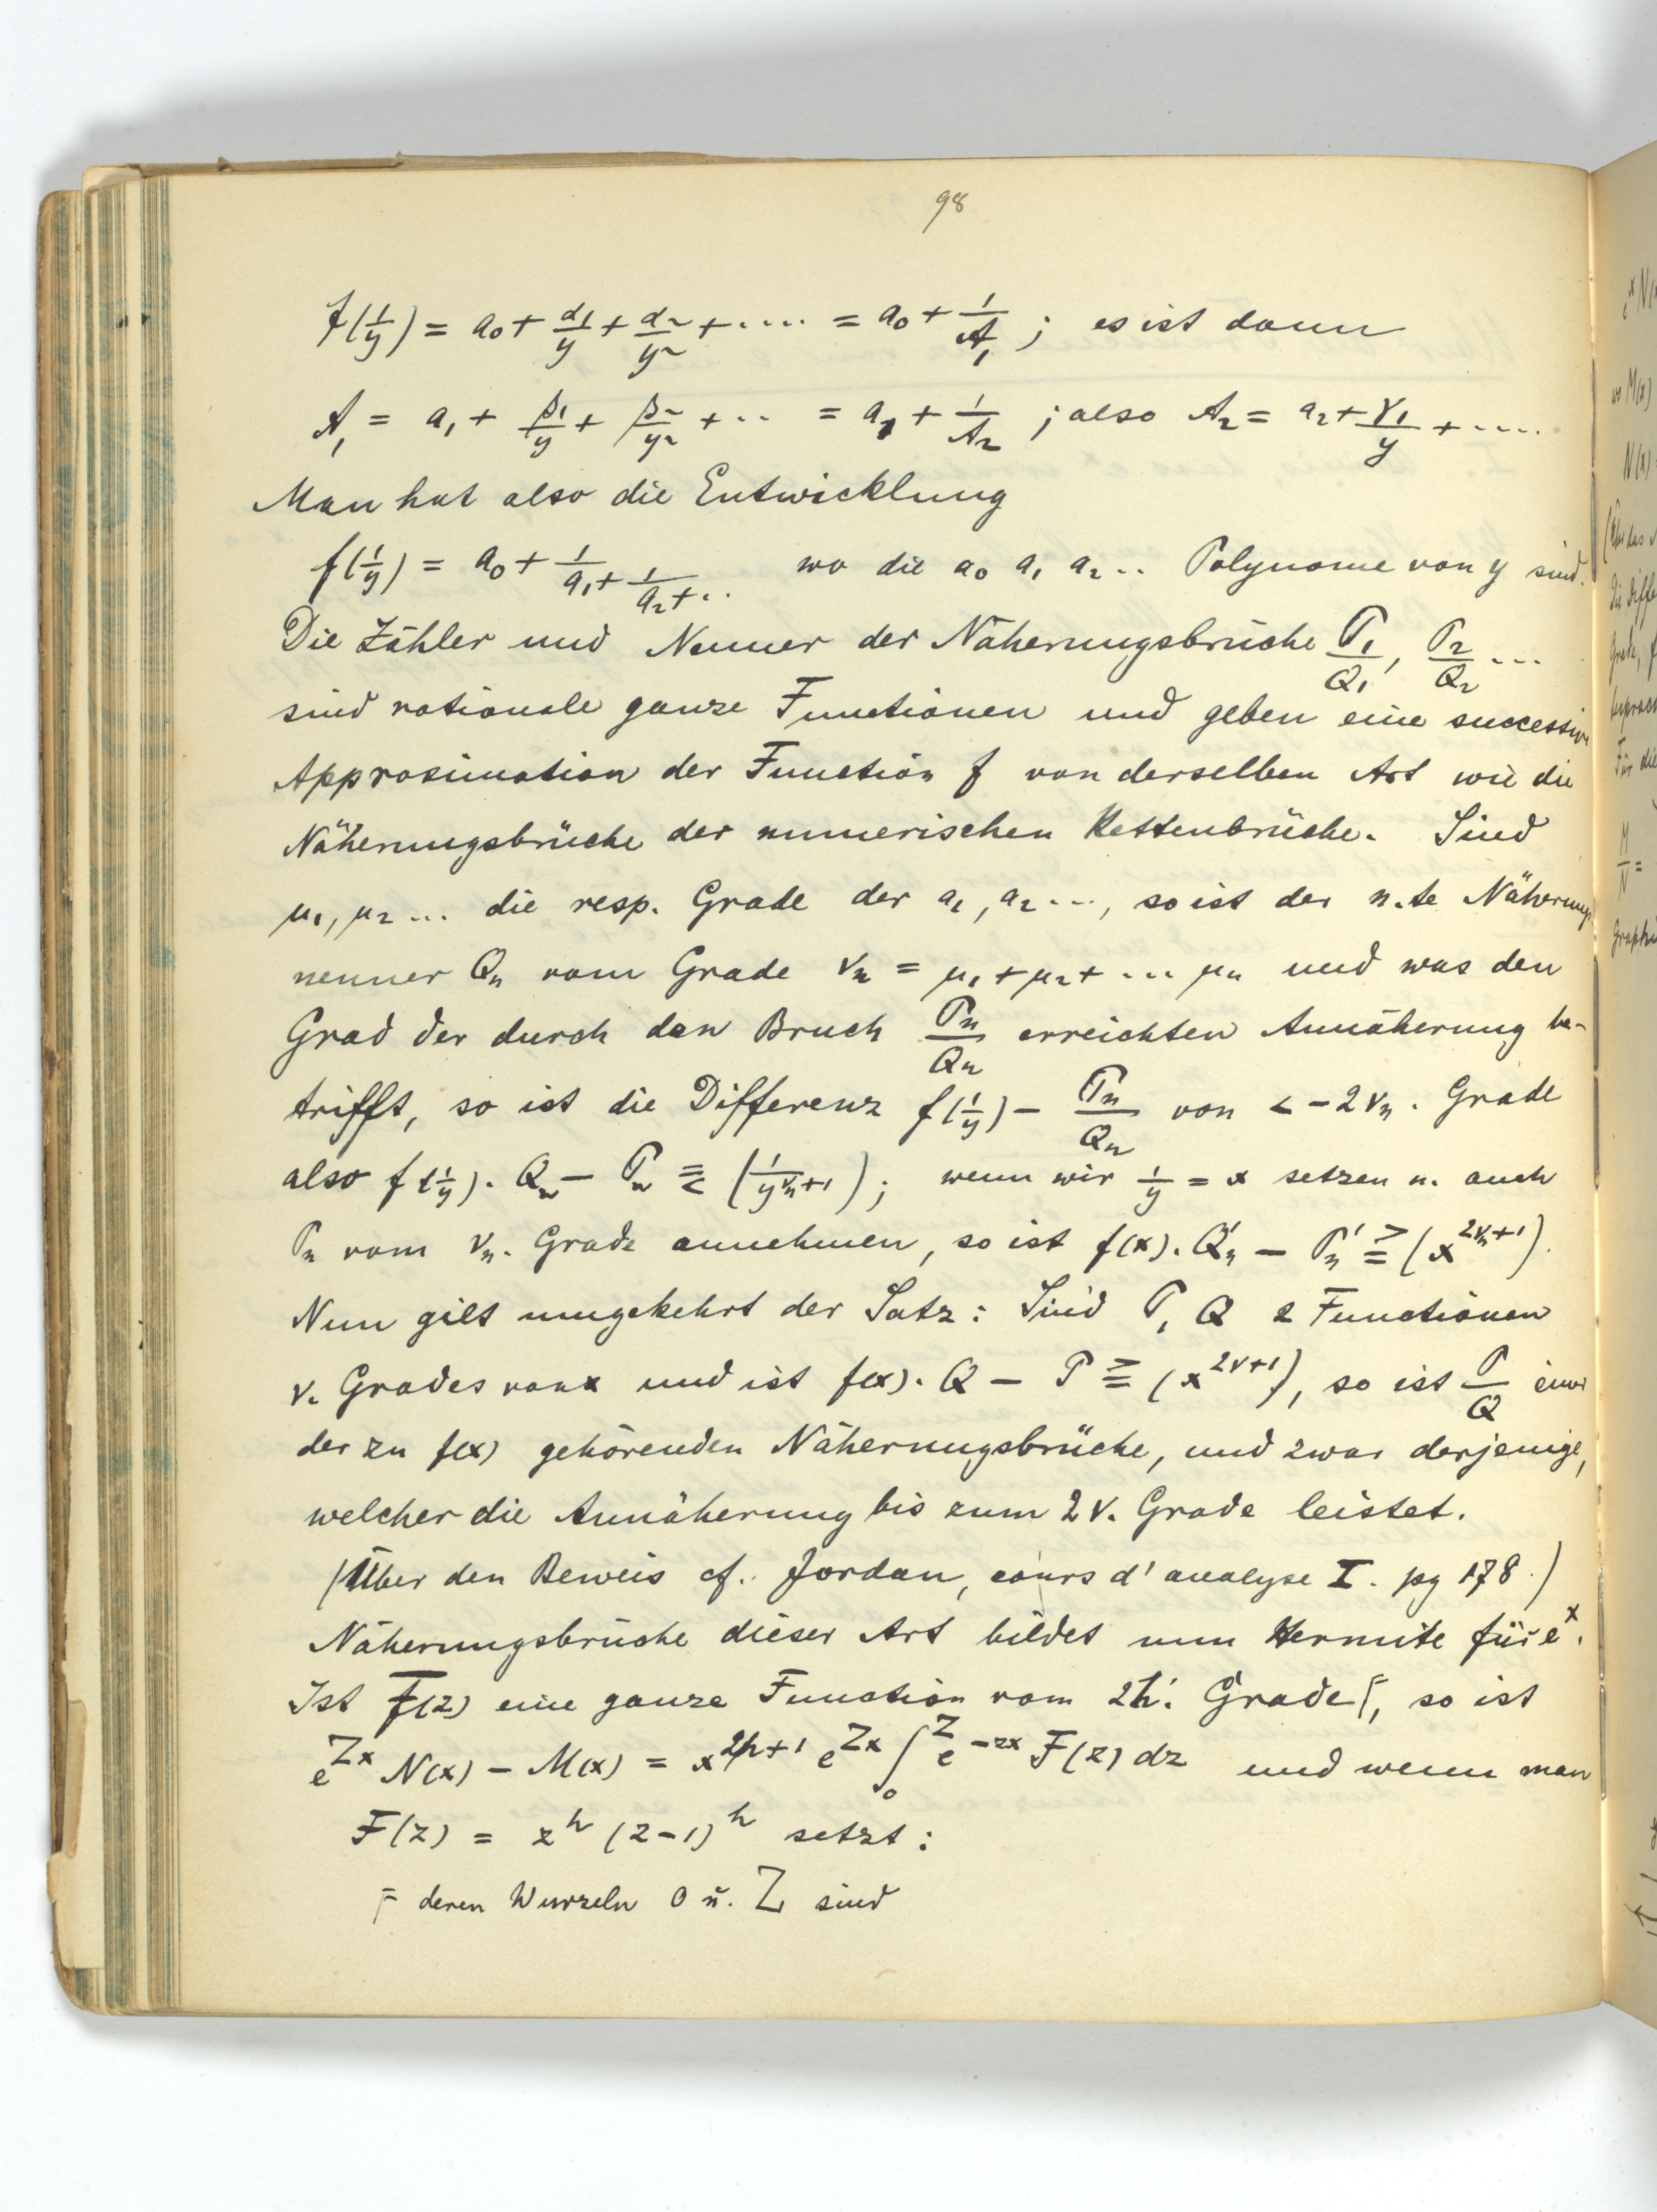 98
f(1/y) = a₀ + α₁/y + α₂/y² + .... = a₀ + 1/A₁ ; es ist dann
A₁ = a₁ + β₁/y + β₂/y² + .. = a₁ + 1/A₂ ; also A₂ = a₂ + γ₁/y + ....
Man hat also die Entwicklung
f(1/y) = a₀ + 1/(a₁ + 1/(a₂ + .. wo die a₀ a₁ a₂ .. Polynome von y sind.
Die Zähler und Nenner der Näherungsbrüche P₁/Q₁, P₂/Q₂ ...
sind rationale ganze Functionen und geben eine successive
Approximation der Function f von derselben Art wie die
Näherungsbrüche der numerischen Kettenbrüche. Sind
μ₁, μ₂ ... die resp. Grade der a₁, a₂ ..., so ist der n.te Näherungs
nenner Qₙ vom Grade νₙ = μ₁ + μ₂ + ... μₙ und was den
Grad der durch den Bruch Pₙ/Qₙ erreichten Annäherung be-
trifft, so ist die Differenz f(1/y) – Pₙ/Qₙ von < – 2νₙ. Grade
also f(1/y). Qₙ – Pₙ ≦ (1/y^(νₙ+1)) ; wenn wir 1/y = x setzen u. auch
Pₙ vom νₙ. Grade annehmen, so ist f(x). Q'ₙ – P'ₙ ≧ (x^(2νₙ+1)).
Nun gilt umgekehrt der Satz: Sind P, Q 2 Functionen
ν. Grades von x und ist f(x). Q – P ≧ (x^(2ν+1)), so ist P/Q einer
der zu f(x) gehörenden Näherungsbrüche, und zwar derjenige,
welcher die Annäherung bis zum 2ν. Grade leistet.
(Über den Beweis cf. Jordan, cours d'analyse I. pg 178.)
Näherungsbrüche dieser Art bildet nun Hermite für e^x.
Ist F(z) eine ganze Function vom 2h. Grade ⌈, so ist
e^(Zx) N(x) – M(x) = x^(2h+1) e^(Zx) ∫₀^Z e^(–zx) F(z) dz und wenn man
F(z) = z^h (z–1)^h setzt:
⌈ deren Wurzeln 0 u. Z sind